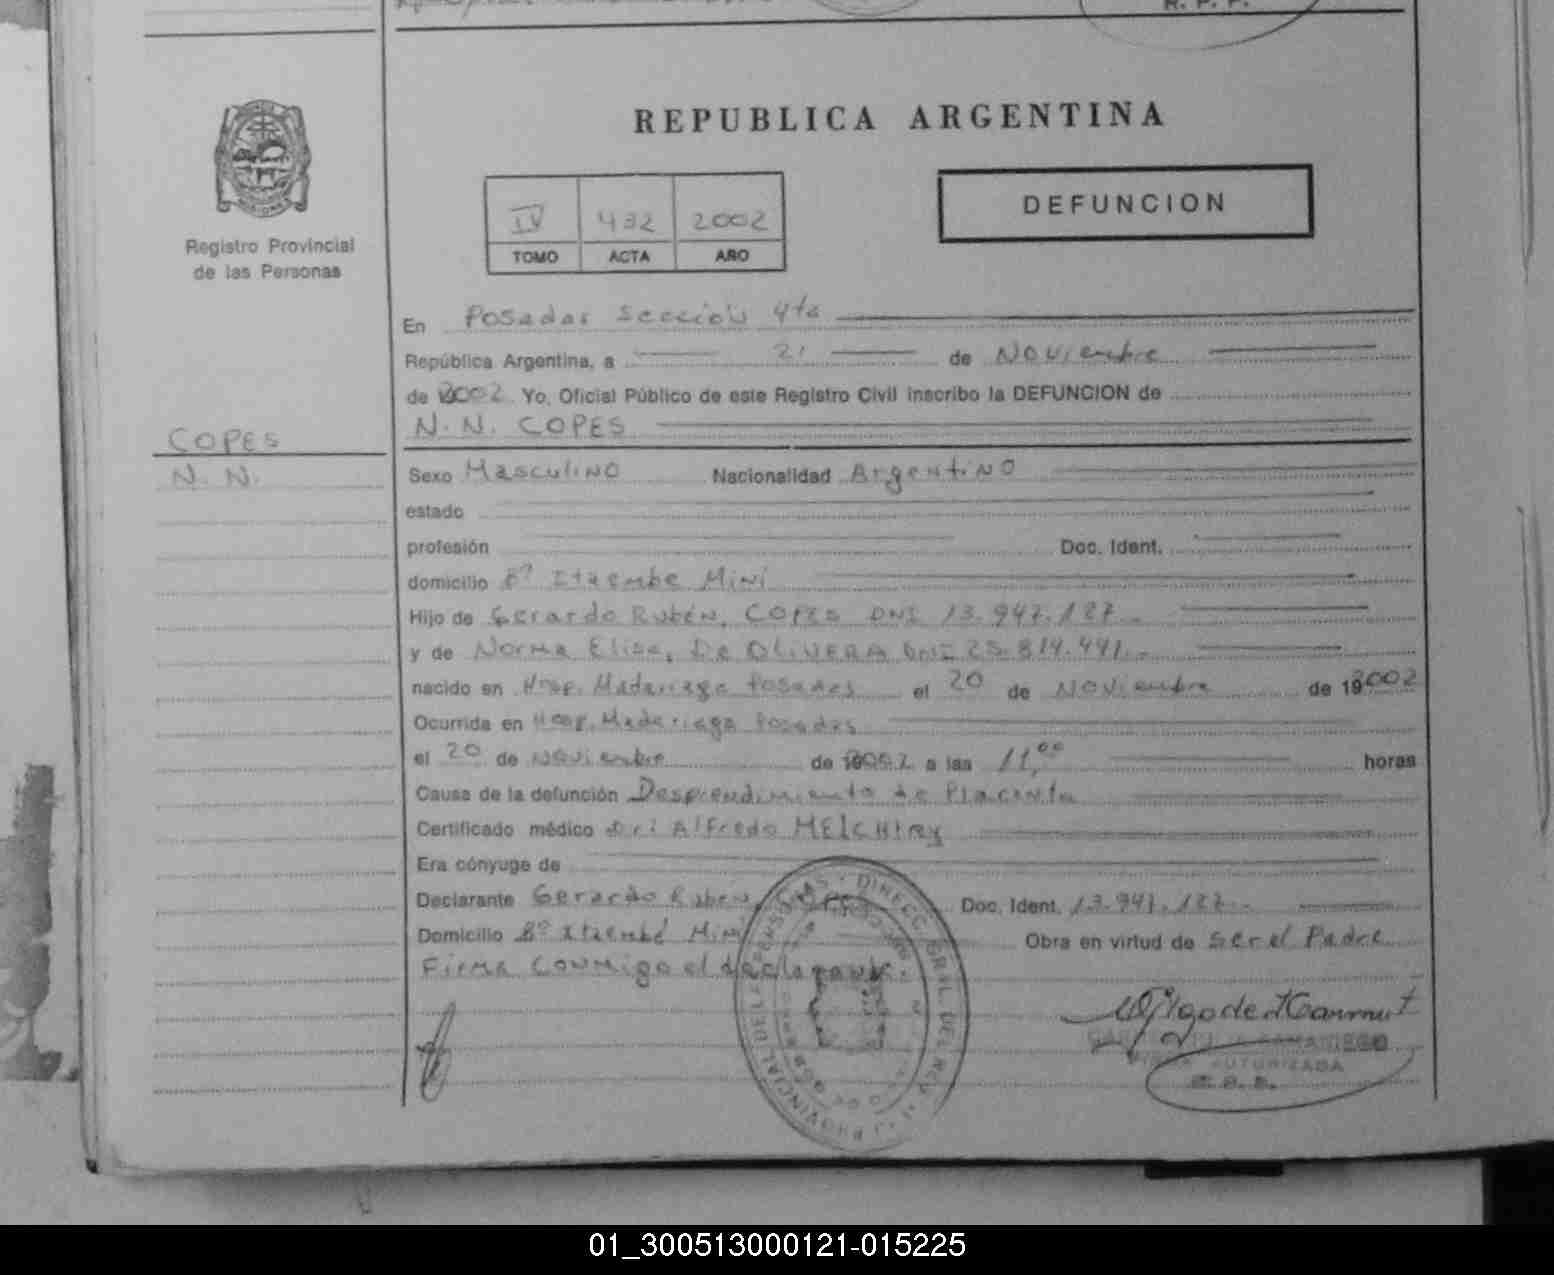 R. P. P.
REPUBLICA ARGENTINA
Registro Provincial
de las Personas
IV 432 2002
TOMO ACTA AÑO
DEFUNCION
En Posadas Sección 4ta
República Argentina, a 21 de Noviembre
de 2002 Yo, Oficial Público de este Registro Civil inscribo la DEFUNCION de
N. N. COPES
COPES
N. N.
Sexo Masculino Nacionalidad Argentino
estado
profesión Doc. Ident.
domicilio Bº Itaembe Mini
Hijo de Gerardo Rubén, COPES DNI 13.947.127.-
y de Norma Elisa, De OLIVERA DNI 25.814.441.-
nacido en Hosp. Madariaga Posadas el 20 de Noviembre de 2002
Ocurrida en Hosp. Madariaga Posadas
el 20 de Noviembre de 2002 a las 11,00 horas
Causa de la defunción Desprendimiento de Placenta
Certificado médico Dr. Alfredo
Era cónyuge de
Declarante Gerardo Rubén Doc. Ident. 13.947.127.-
Domicilio Bº Itaembé Mini Obra en virtud de ser el Padre
Firma conmigo el declarante.
AUTORIZADA
01_300513000121-015225